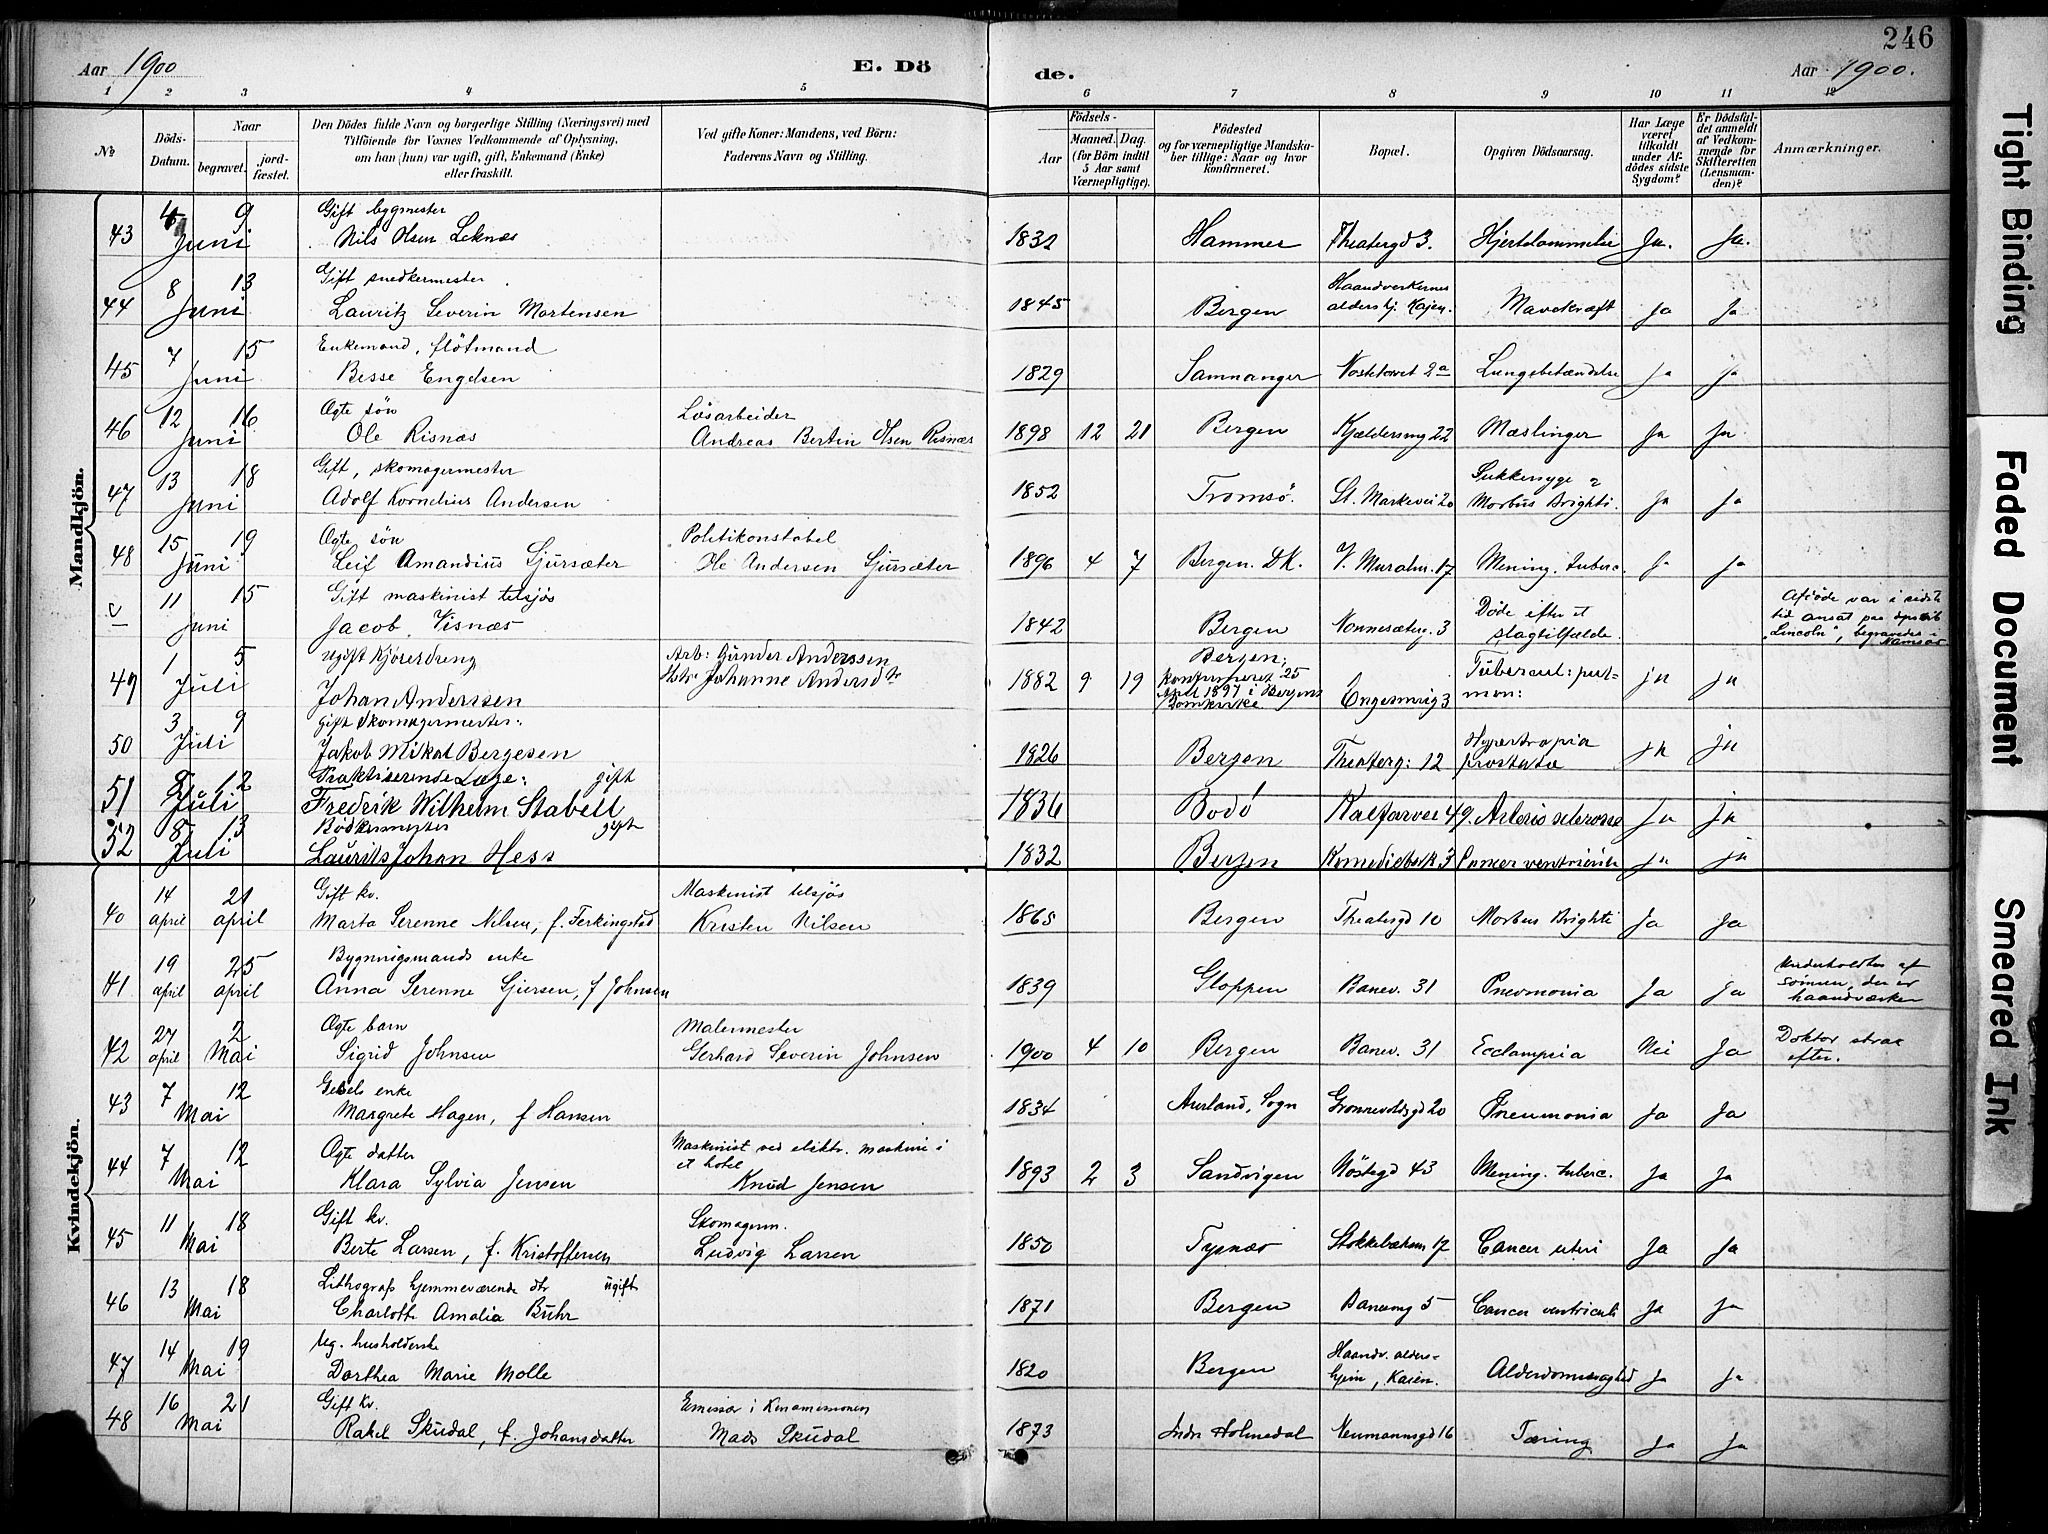 246
Aar 1900 E. Dö de. Aar 1900.
1 2 3 4 5 6 7 8 9 10 11 12
No Döds-Datum. Naar begravet. jord-fæstet. Den Dödes fulde Navn og borgerlige Stilling (Næringsvei) med Tilföiende for Voxnes Vedkommende af Oplysning, om han (hun) var ugift, gift, Enkemand (Enke) eller fraskilt. Ved gifte Koner: Mandens, ved Börn: Faderens Navn og Stilling. Födsels- Aar Maaned. Dag. (for Börn indtil 5 Aar samt Værnepligtige). Födested og for værnepligtige Mandskaber tillige: Naar og hvor konfirmeret. Bopæl. Opgiven Dödsaarsag. Har Læge været tilkaldt under Afdödes sidste Sygdom? Er Dödsfaldet anmeldt af Vedkommende for Skifteretten (Lensmanden)? Anmærkninger.
Mandkjön.
43 4 9 Juni Gift bygmester
Nils Olsen Leknæs 1832 Hammer Theatergd 3. Hjertelammelse Ja. Ja.
44 8 13 Juni Gift snedkermester
Lauritz Severin Mortensen 1845 Bergen Haandverkernes aldershj. Kajen. Mavekræft Ja Ja
45 7 15 Juni Enkemand, flötmand
Besse Engelsen 1829 Samnanger Nostetorvet 2a Lungebetændelse Ja Ja
46 12 16 Juni Ægte sön Lösarbeider
Ole Risnæs Andreas Bertin Olsen Risnæs 1898 12 21 Bergen Kjeldersmg 22 Mæslinger Ja Ja
47 13 18 Juni Gift, skomagermester
Adolf Kornelius Andersen 1852 Tromsö. St. Markevei 20 Sukkersyge & Morbus Brighti. Ja Ja
48 15 19 Juni Ægte sön Politikonstabel
Leif Amandius Gjursæter Ole Andersen Gjursæter 1896 4 7 Bergen. DK. V. Muralm. 17 Mening. tuberc. Ja Ja
11 15 Juni Gift maskinist tilsjös
Jacob Visnæs 1842 Bergen Nonnesæterg. 3 Döde efter et slagtilfælde. Afdöde var i sidste tid ansat paa "Lincoln", begravedes i Namsos
49 1 5 Juli Ugift Kjöredreng Arb: Gunder Anderssen
Johan Anderssen Hstr Johanne Andersdtr 1882 9 19 Bergen; konfirmeret 25 April 1897 i Bergens Domkirke Engesmug 3 Tubercul: pulmon: ja ja
50 3 9 Juli gift Skomagermester:
Jakob Mikal Bergesen 1826 Bergen Theaterg: 12 Hypertropia prostatæ ja ja
51 5 12 Juli Praktiserende Læge: gift
Fredrik Wilhelm Stabell 1836 Bodö Kalfarvei 49. Arterio sclerose Ja ja
52 8 13 Juli Bödkermester gift
Laurits Johan Hess 1832 Bergen Komediebak 3 Cancer ventriculi ja ja
Kvindekjön.
40 14 april 21 april Gift kv. Maskinist tilsjös
Marta Serenne Nilsen, f. Ferkingstad Kristen Nilsen 1865 Bergen Theatergd 10 Morbus Brighti Ja Ja
41 19 april 25 april Bygningsmands enke
Anna Serenne Gjersen, f Johnsen 1839 Gloppen Banev. 31 Pnevmonia Ja Ja Underholdtes af sönnen, der er haandværker
42 27 april 2 Mai Ægte barn Malermester
Sigrid Johnsen Gerhard Severin Johnsen 1900 4 10 Bergen Banev. 31 Ecclampsia Nei Ja Doktor strax efter.
43 7 12 Mai Gesels enke
Margrete Hagen, f Hansen 1834 Aurland, Sogn Gronnevoldsgd 20 Pneumonia Ja Ja
44 7 12 Mai Ægte datter Maskinist ved elektr. maskine i et hotel
Klara Sylvia Jensen Knud Jensen 1893 2 3 Sandvigen Nöstegd 43 Mening. tuberc. Ja Ja
45 11 18 Mai Gift kv. Skomagerm.
Berte Larsen, f. Kristoffersen Ludvig Larsen 1850 Tysnæs 17 Cancer uteri Ja Ja
46 13 18 Mai Lithograf hjemmeværende dtr ugift
Charlotte Amalia Buhr 1871 Bergen Banesmg 5 Cancer ventriculi Ja Ja
47 14 19 Mai Ug. husholderske
Dorthea Marie Molle 1820 Bergen Haandv. alders-hjem, Kaien. Alderdomssvaghed Ja Ja
48 16 21 Mai Gift kv. Emissær i Kinamissionen
Rakel Skudal, f. Johansdatter Mads Skudal 1873 Indre Holmedal Neumannsgd 16 Tæring Ja Ja
Tight Binding
Faded Document
Smeared Ink